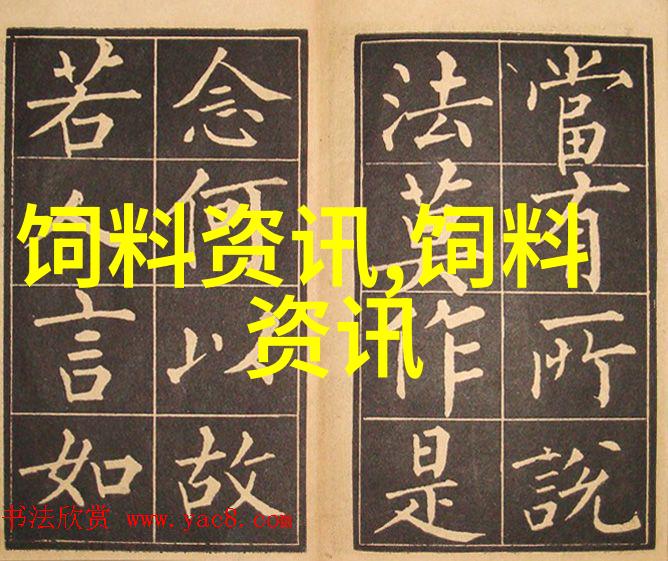 當有所說
法莫作是
念何以故
若人言如
饲料资讯,饲料
资讯
书法欣赏 www.yac8.com